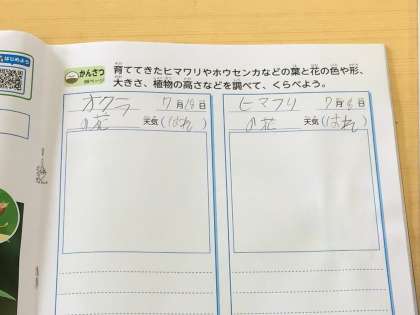 はじめよう
かんさつ
育ててきたヒマワリやホウセンカなどの葉と花の色や形、
大きさ、植物の高さなどを調べて、くらべよう。
オクラ 7月18日
の花 天気(はれ)
ヒマワリ 7月 日
の花 天気(はれ)